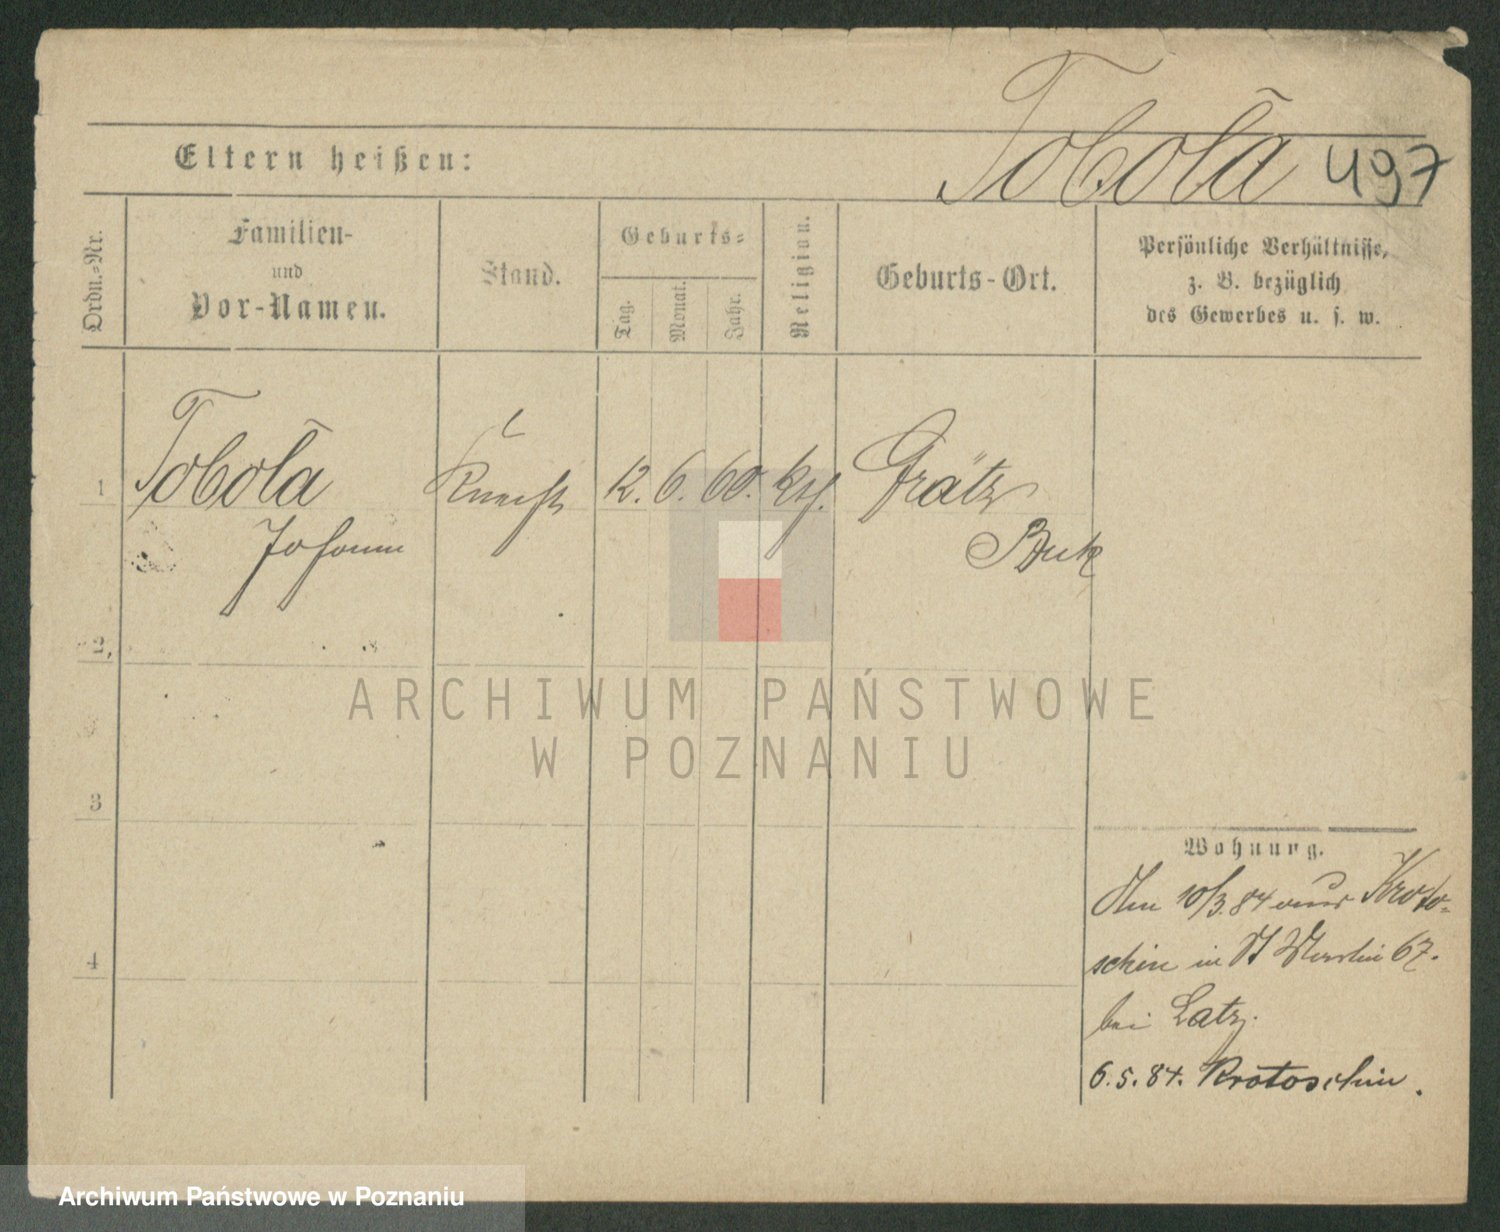 Tobola 497
Eltern heißen:
Ordn.-Nr.
Familien-
und
Vor-Namen.
Stand.
Geburts-
Tag.
Monat.
Jahr.
Religion.
Geburts-Ort.
Persönliche Verhältnisse,
z. B. bezüglich
des Gewerbes u. s. w.
1 Tobola Knecht 12. 6. 60. kth. Grätz
Johann Buk
2,
3
4
Wohnung.
Am 10/3. 84 aus Kroto-
schin in St Martin 67.
bei Latz.
6.5.84. Krotoschin.
ARCHIWUM PAŃSTWOWE
W POZNANIU
Archiwum Państwowe w Poznaniu